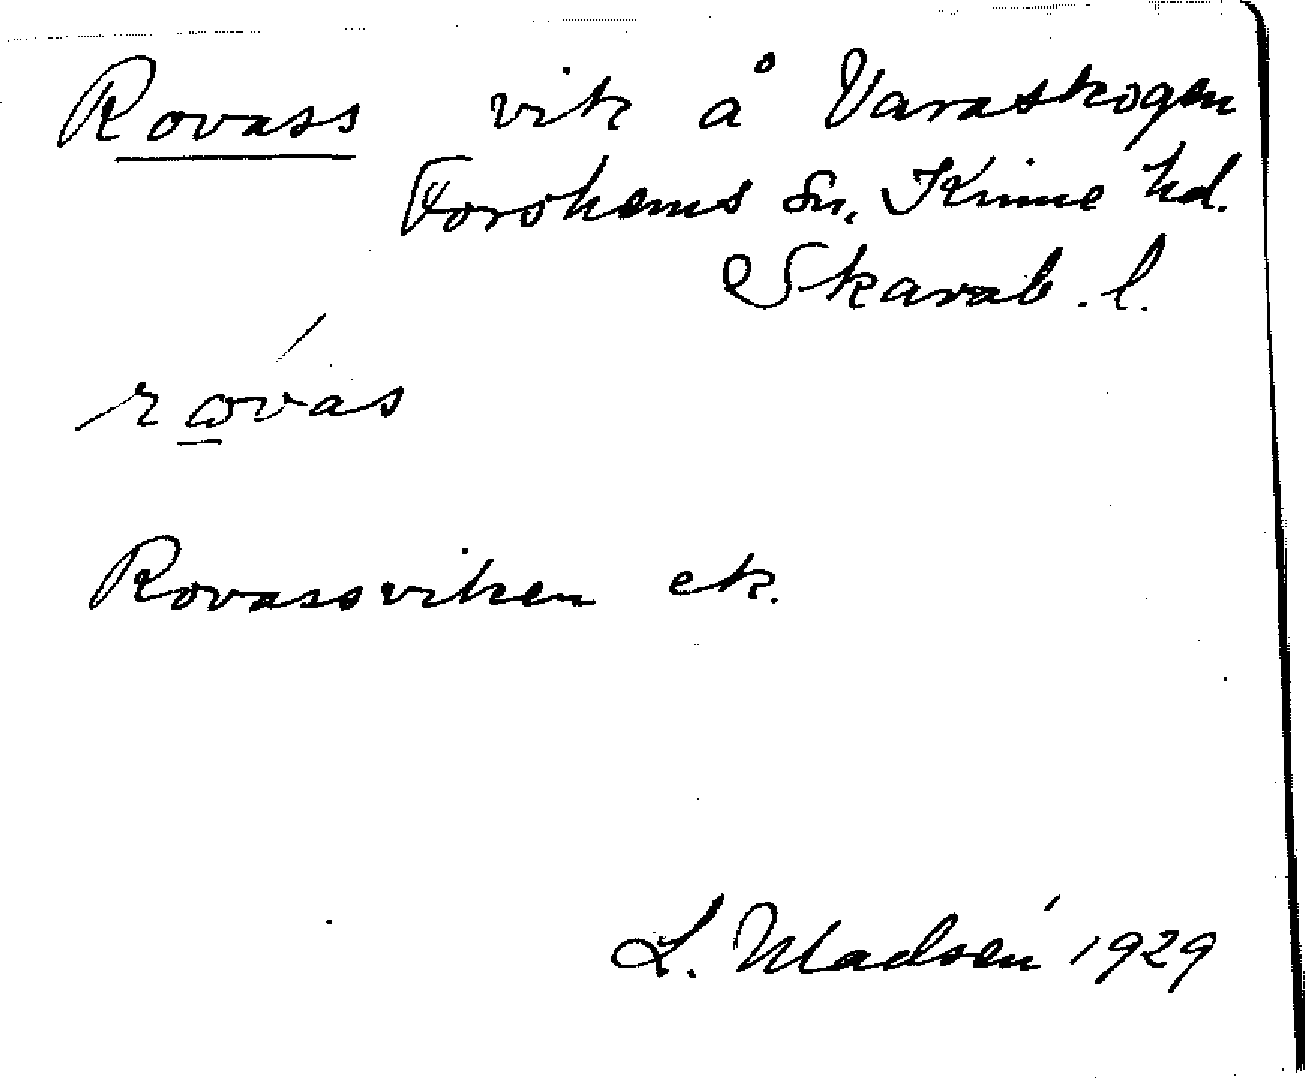 Rovass vik å Varaskogen
Forshems Sn, Kinne hd.
Skarab. l.
rovás
Rovassviken ek.
L. Madsén 1929